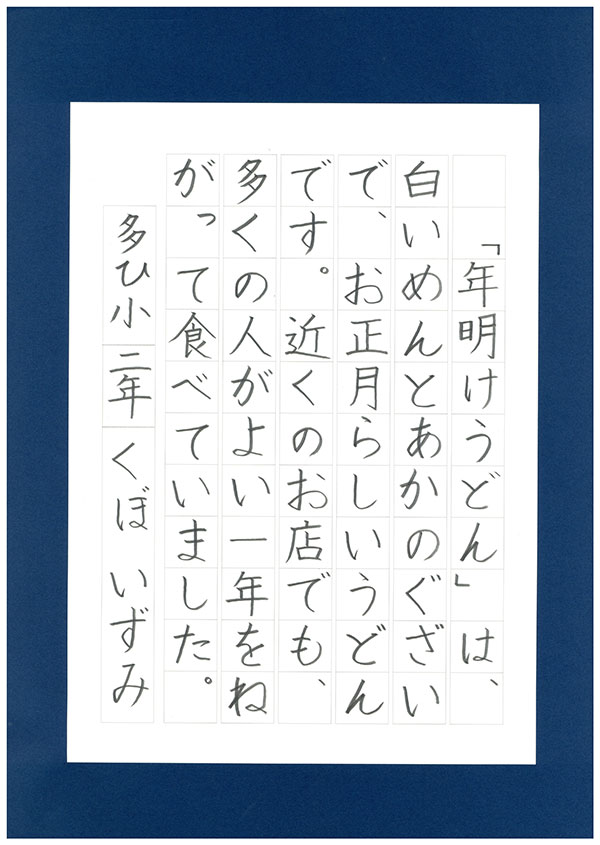 「年明けうどん」は、
白いめんとあかのぐざい
で、お正月らしいうどん
です。近くのお店でも、
多くの人がよい一年をね
がって食べていました。
多ひ小 二年 くぼ いずみ